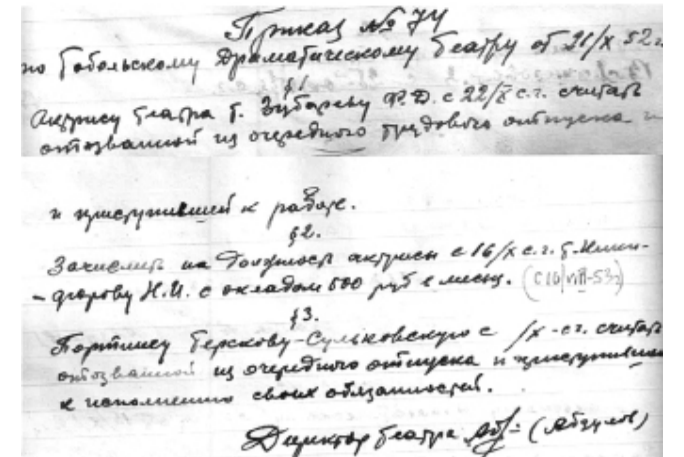 Приказ № 74
по Тобольскому Драматическому Театру от 21/X 52 г.
§1
Актрису театра т. Зубареву Ф.Д. с 22/X с.г. считать
отозванной из очередного трудового отпуска и
и приступившей к работе.
§2.
Зачислить на должность актрисы с 16/X с.г. т.
Н.И. с окладом 500 руб в месяц. (с 10/VIII-53г)
§3.
Терскову-Сульковскую с /X-с.г. считать
отозванной из очередного отпуска и приступившей
к исполнению своих обязанностей.
Директор театра